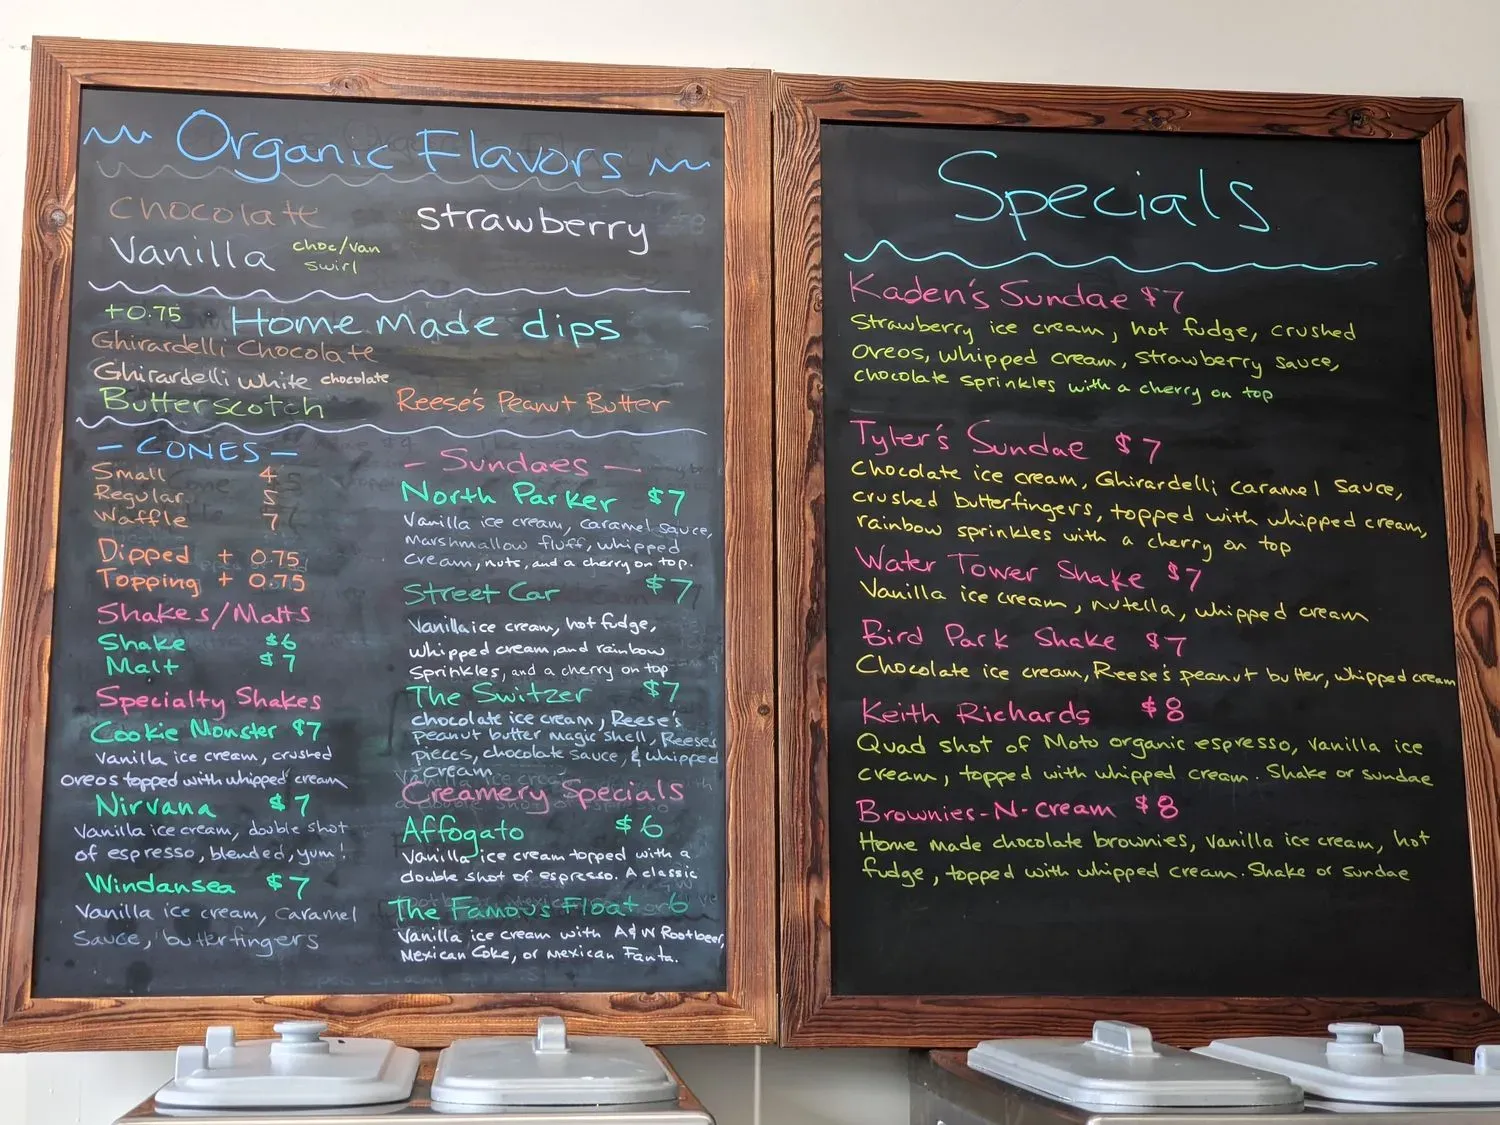 Organic Flavors
Chocolate
Strawberry
Vanilla
choc/van
swirl
+0.75 Home Made dips
Ghirardelli Chocolate
Ghirardelli White chocolate
Butterscotch
Reese's Peanut Butter
- CONES -
Small 4
Regular 5
Waffle 7
Dipped + 0.75
Topping + 0.75
Shakes/Malts
Shake $6
Malt $7
Specialty Shakes
Cookie Monster $7
Vanilla ice cream, crushed
oreos topped with whipped cream
Nirvana $7
Vanilla ice cream, double shot
of espresso, blended, yum!
Windansea $7
Vanilla ice cream, caramel
Sauce, butterfingers
- Sundaes -
North Parker $7
Vanilla ice cream, caramel sauce,
Marshmallow fluff, whipped
cream, nuts, and a cherry on top.
Street Car $7
Vanilla ice cream, hot fudge,
whipped cream, and rainbow
Sprinkles, and a cherry on top
The Switzer $7
chocolate ice cream, Reese's
peanut butter magic shell, Reese's
pieces, chocolate sauce, & whipped
cream
Creamery Specials
Affogato $6
Vanilla ice cream topped with a
double shot of espresso. A classic
The Famous Float 6
Vanilla ice cream with A&W Rootbeer,
Mexican Coke, or mexican Fanta.
Specials
Kaden's Sundae $7
Strawberry ice cream, hot fudge, crushed
Oreos, whipped cream, strawberry sauce,
chocolate sprinkles with a cherry on top
Tyler's Sundae $7
Chocolate ice cream, Ghirardelli caramel sauce,
crushed butterfingers, topped with whipped cream,
rainbow sprinkles with a cherry on top
Water Tower Shake $7
Vanilla ice cream, nutella, whipped cream
Bird Park Shake $7
Chocolate ice cream, Reese's peanut butter, whipped cream
Keith Richards $8
Quad shot of Moto organic espresso, vanilla ice
cream, topped with whipped cream. Shake or sundae
Brownies-N-Cream $8
Home made chocolate brownies, vanilla ice cream, hot
fudge, topped with whipped cream. Shake or sundae